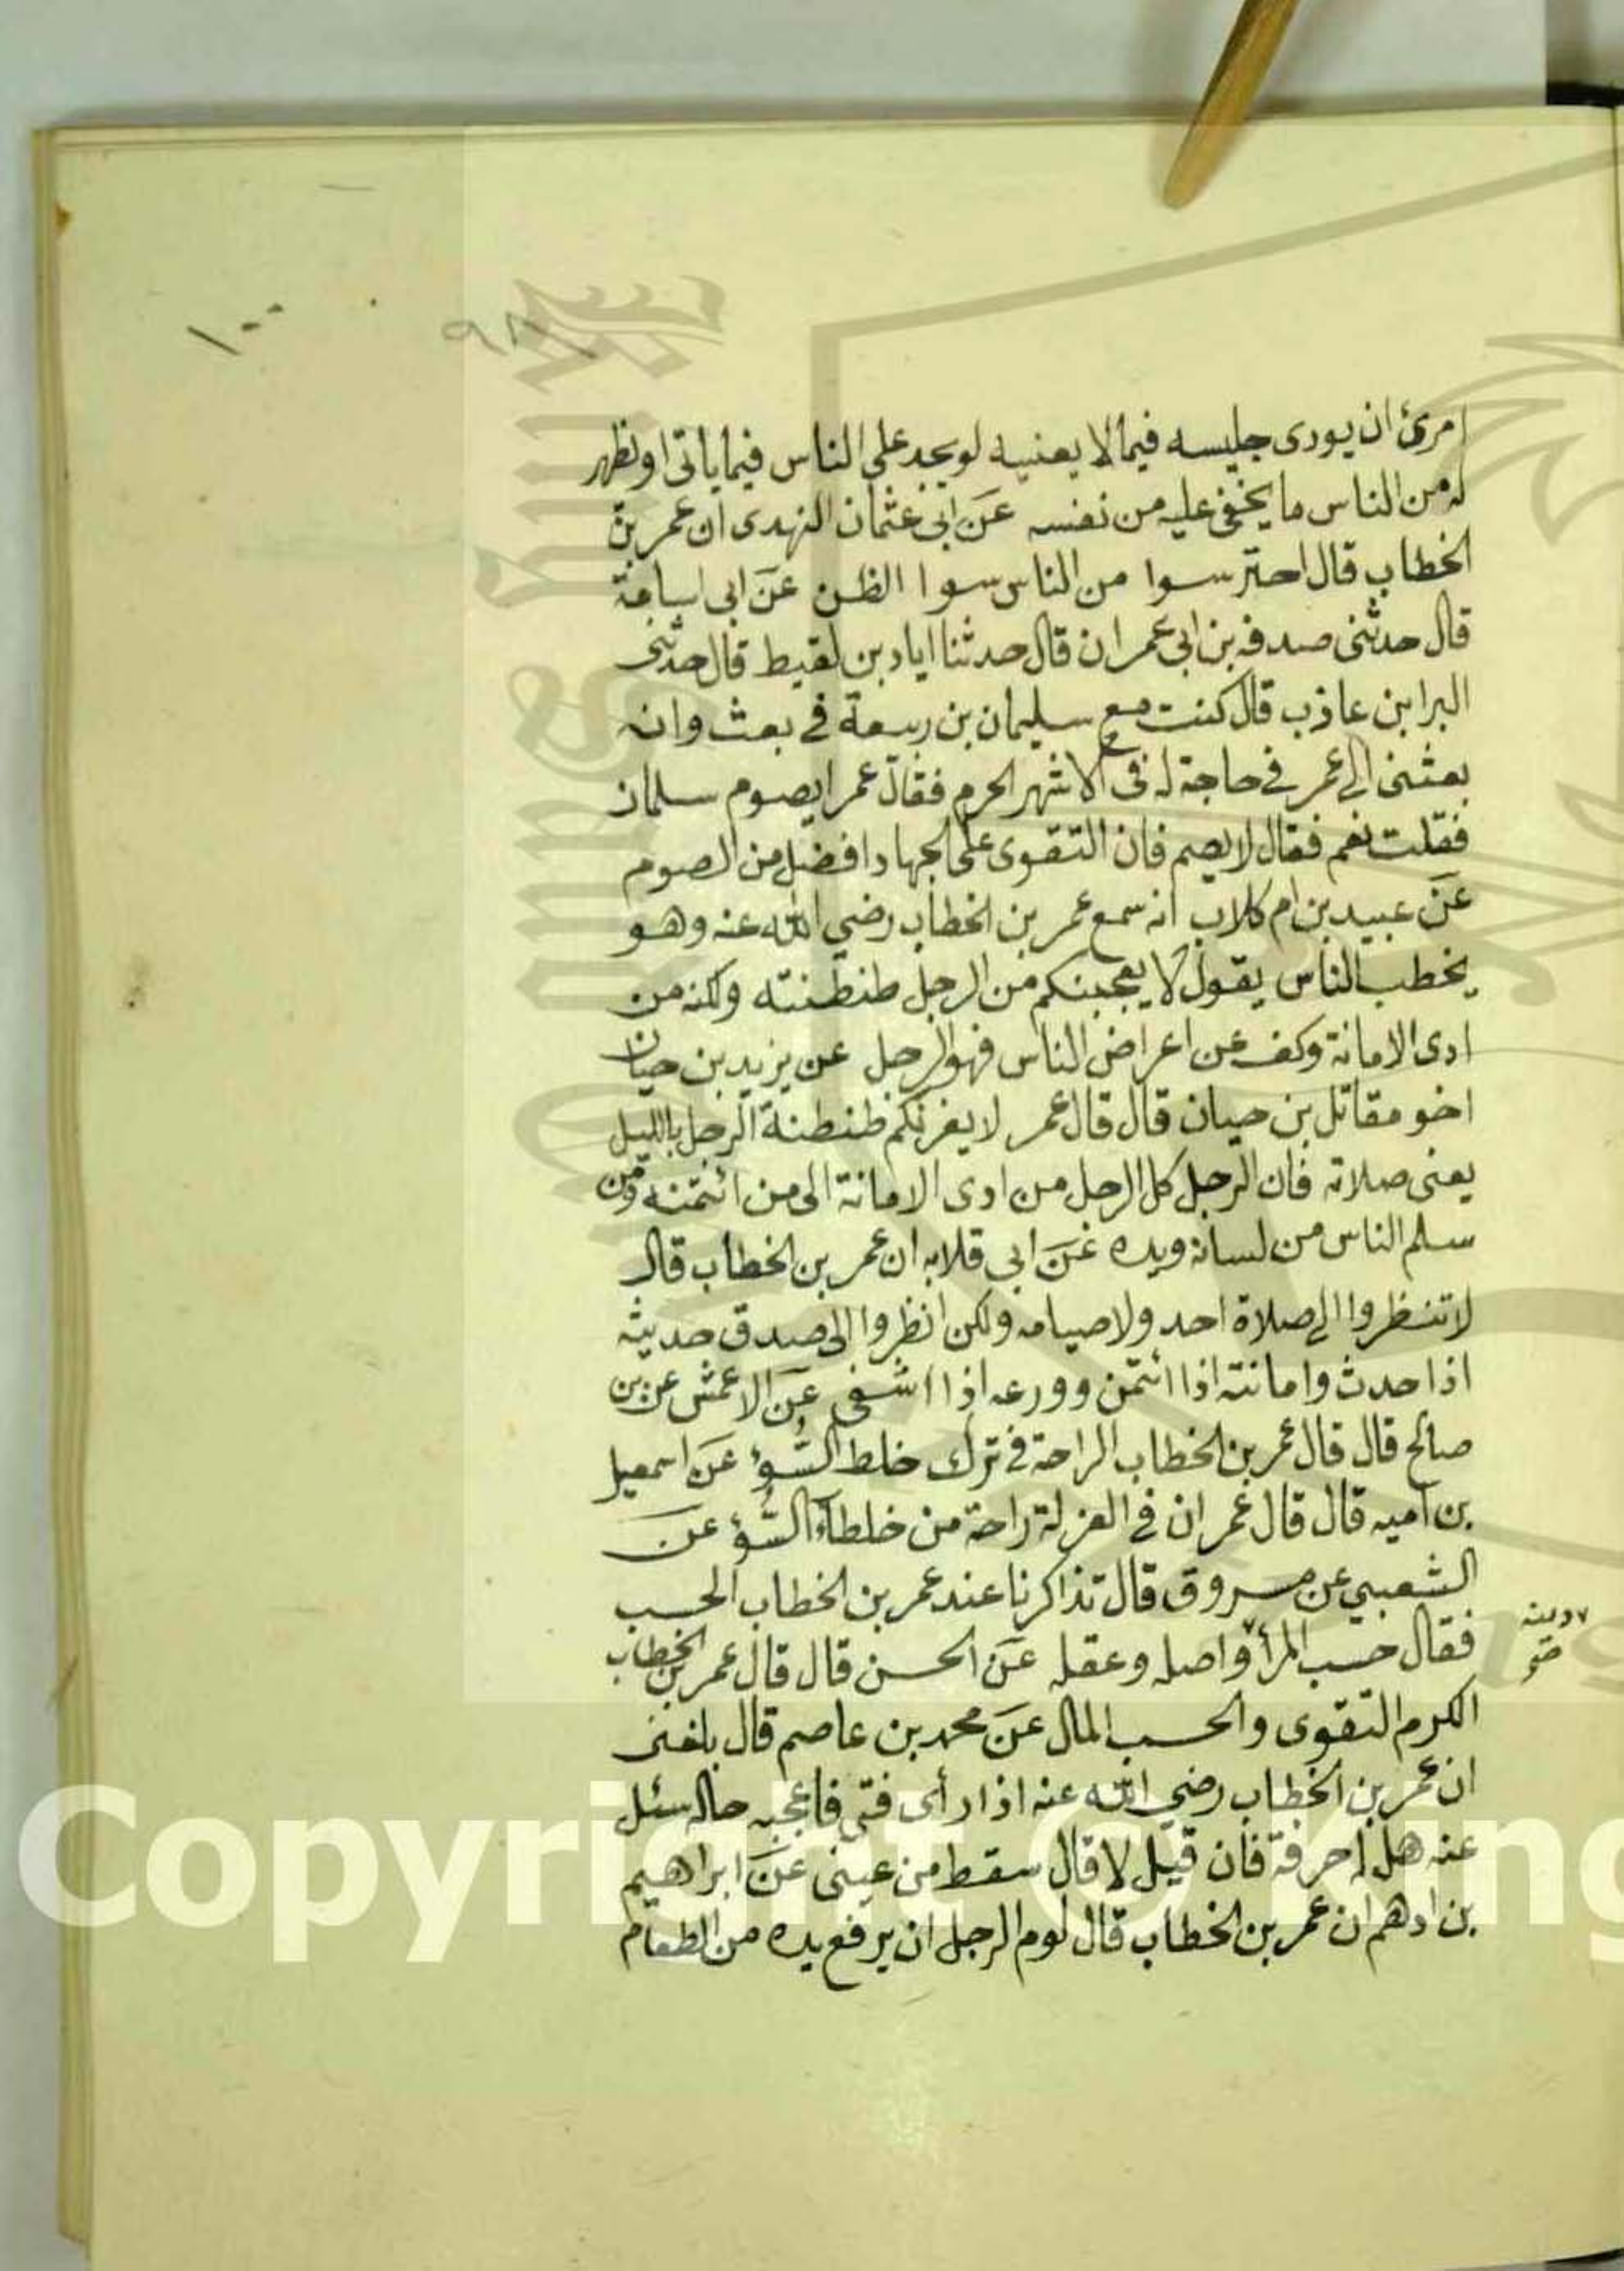 ١٠٠
٩٨
امرئ ان يودى جليسه فيما لا يعنيه لو يجد على الناس فيما ياتى او نظهر
له من الناس ما يخفى عليه من نفسه عن ابى عثمان النهدى ان عمر بن
الخطاب قال احترسوا من الناس سوا الظن عن ابى اسامة
قال حدثنى صدقه بن ابى عمران قال حدثنا اياد بن لقيط قال حدثنى
البرا بن عاذب قال كنت مع سليمان بن ربيعة فى بعث وانه
بعثنى الى عمر فى حاجة له فى الاشهر الحرم فقال عمر ايصوم سلمان
فقلت نعم فقال لا يصم فان التقوى على الجهاد افضل من الصوم
عن عبيد بن ام كلاب انه سمع عمر بن الخطاب رضي الله عنه وهو
يخطب الناس يقول لا يعجبنكم من الرجل طنطنته ولكنه من
ادى الامانة وكف عن اعراض الناس فهو الرجل عن يزيد بن حيان
اخو مقاتل بن حيان قال قال عمر لا يغرنكم طنطنة الرجل بالليل
يعنى صلاته فان الرجل كل الرجل من ادى الامانة الى من ائتمنه ومن
سلم الناس من لسانه ويده عن ابي قلابه ان عمر بن الخطاب قال
لا تنظروا الى صلاة احد ولا صيامه ولكن انظروا الى صدق حديثه
اذا حدث وامانته اذا ائتمن وورعه اذا اشفى عن الاعمش عن بن
صالح قال قال عمر بن الخطاب الراحة فى ترك خلط السُّوْ عن اسمعيل
بن اميه قال قال عمر ان فى العزلة راحة من خلطآء السُّوْ عن
الشعبي عن مسروق قال تذاكرنا عند عمر بن الخطاب الحسب
فقال حسب المرأ واصله وعقله عن الحسن قال قال عمر بن الخطاب
دينه
صح
الكرم التقوى والحسب المال عن محمد بن عاصم قال بلغنى
ان عمر بن الخطاب رضي الله عنه اذا رأى فتى فاعجبه حاله سئل
عنه هل له حرفة فان قيل لا قال سقط من عينى عن ابراهيم
بن ادهم ان عمر بن الخطاب قال لوم الرجل ان يرفع يده من الطعام
Copyright © King